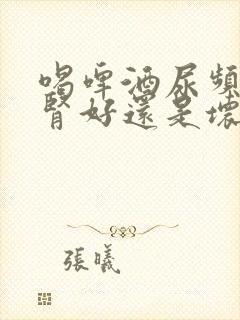 喝啤酒尿頻
腎好還是壞
張曦